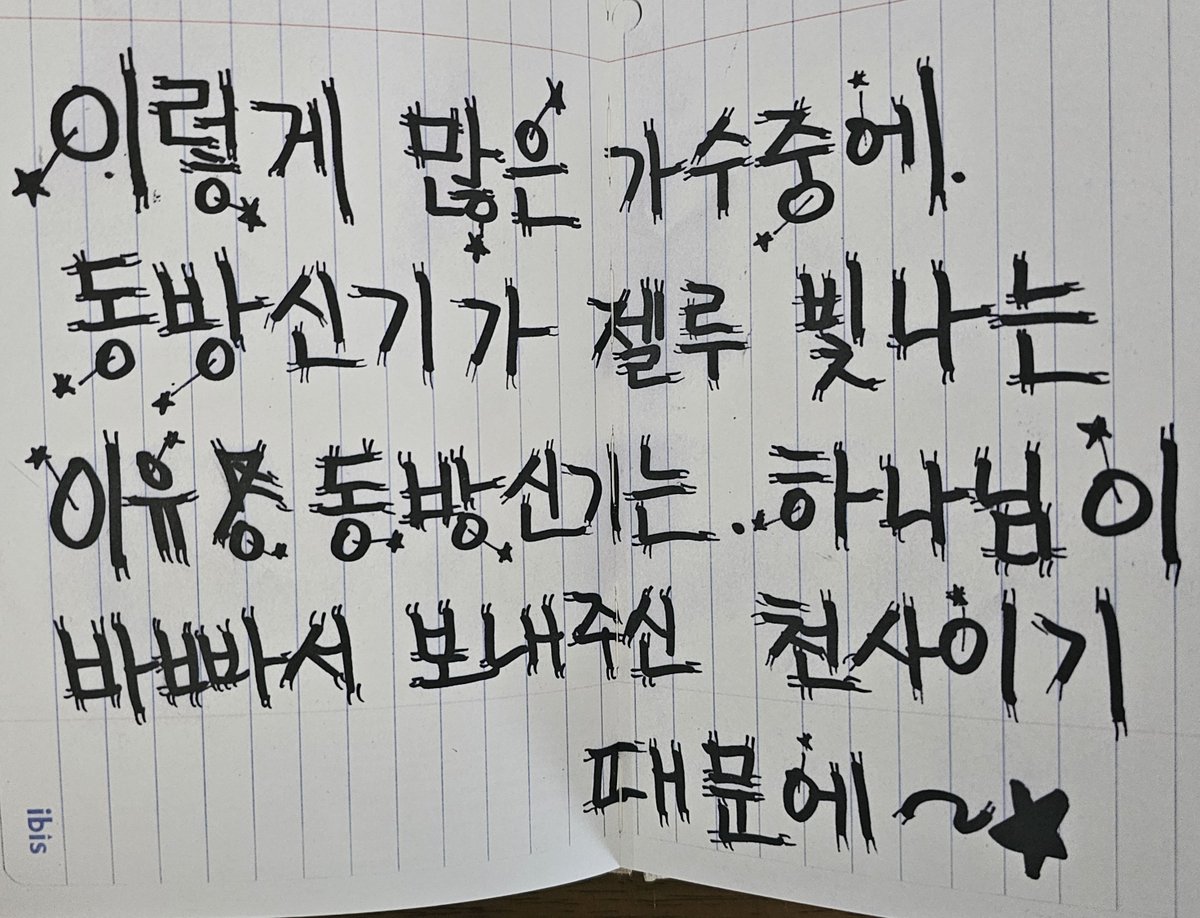 이렇게 많은 가수중에.
동방신기가 젤루 빛나는
이유 동방신기는. 하나님이
바빠서 보내주신 천사이기
때문에~★
ibis